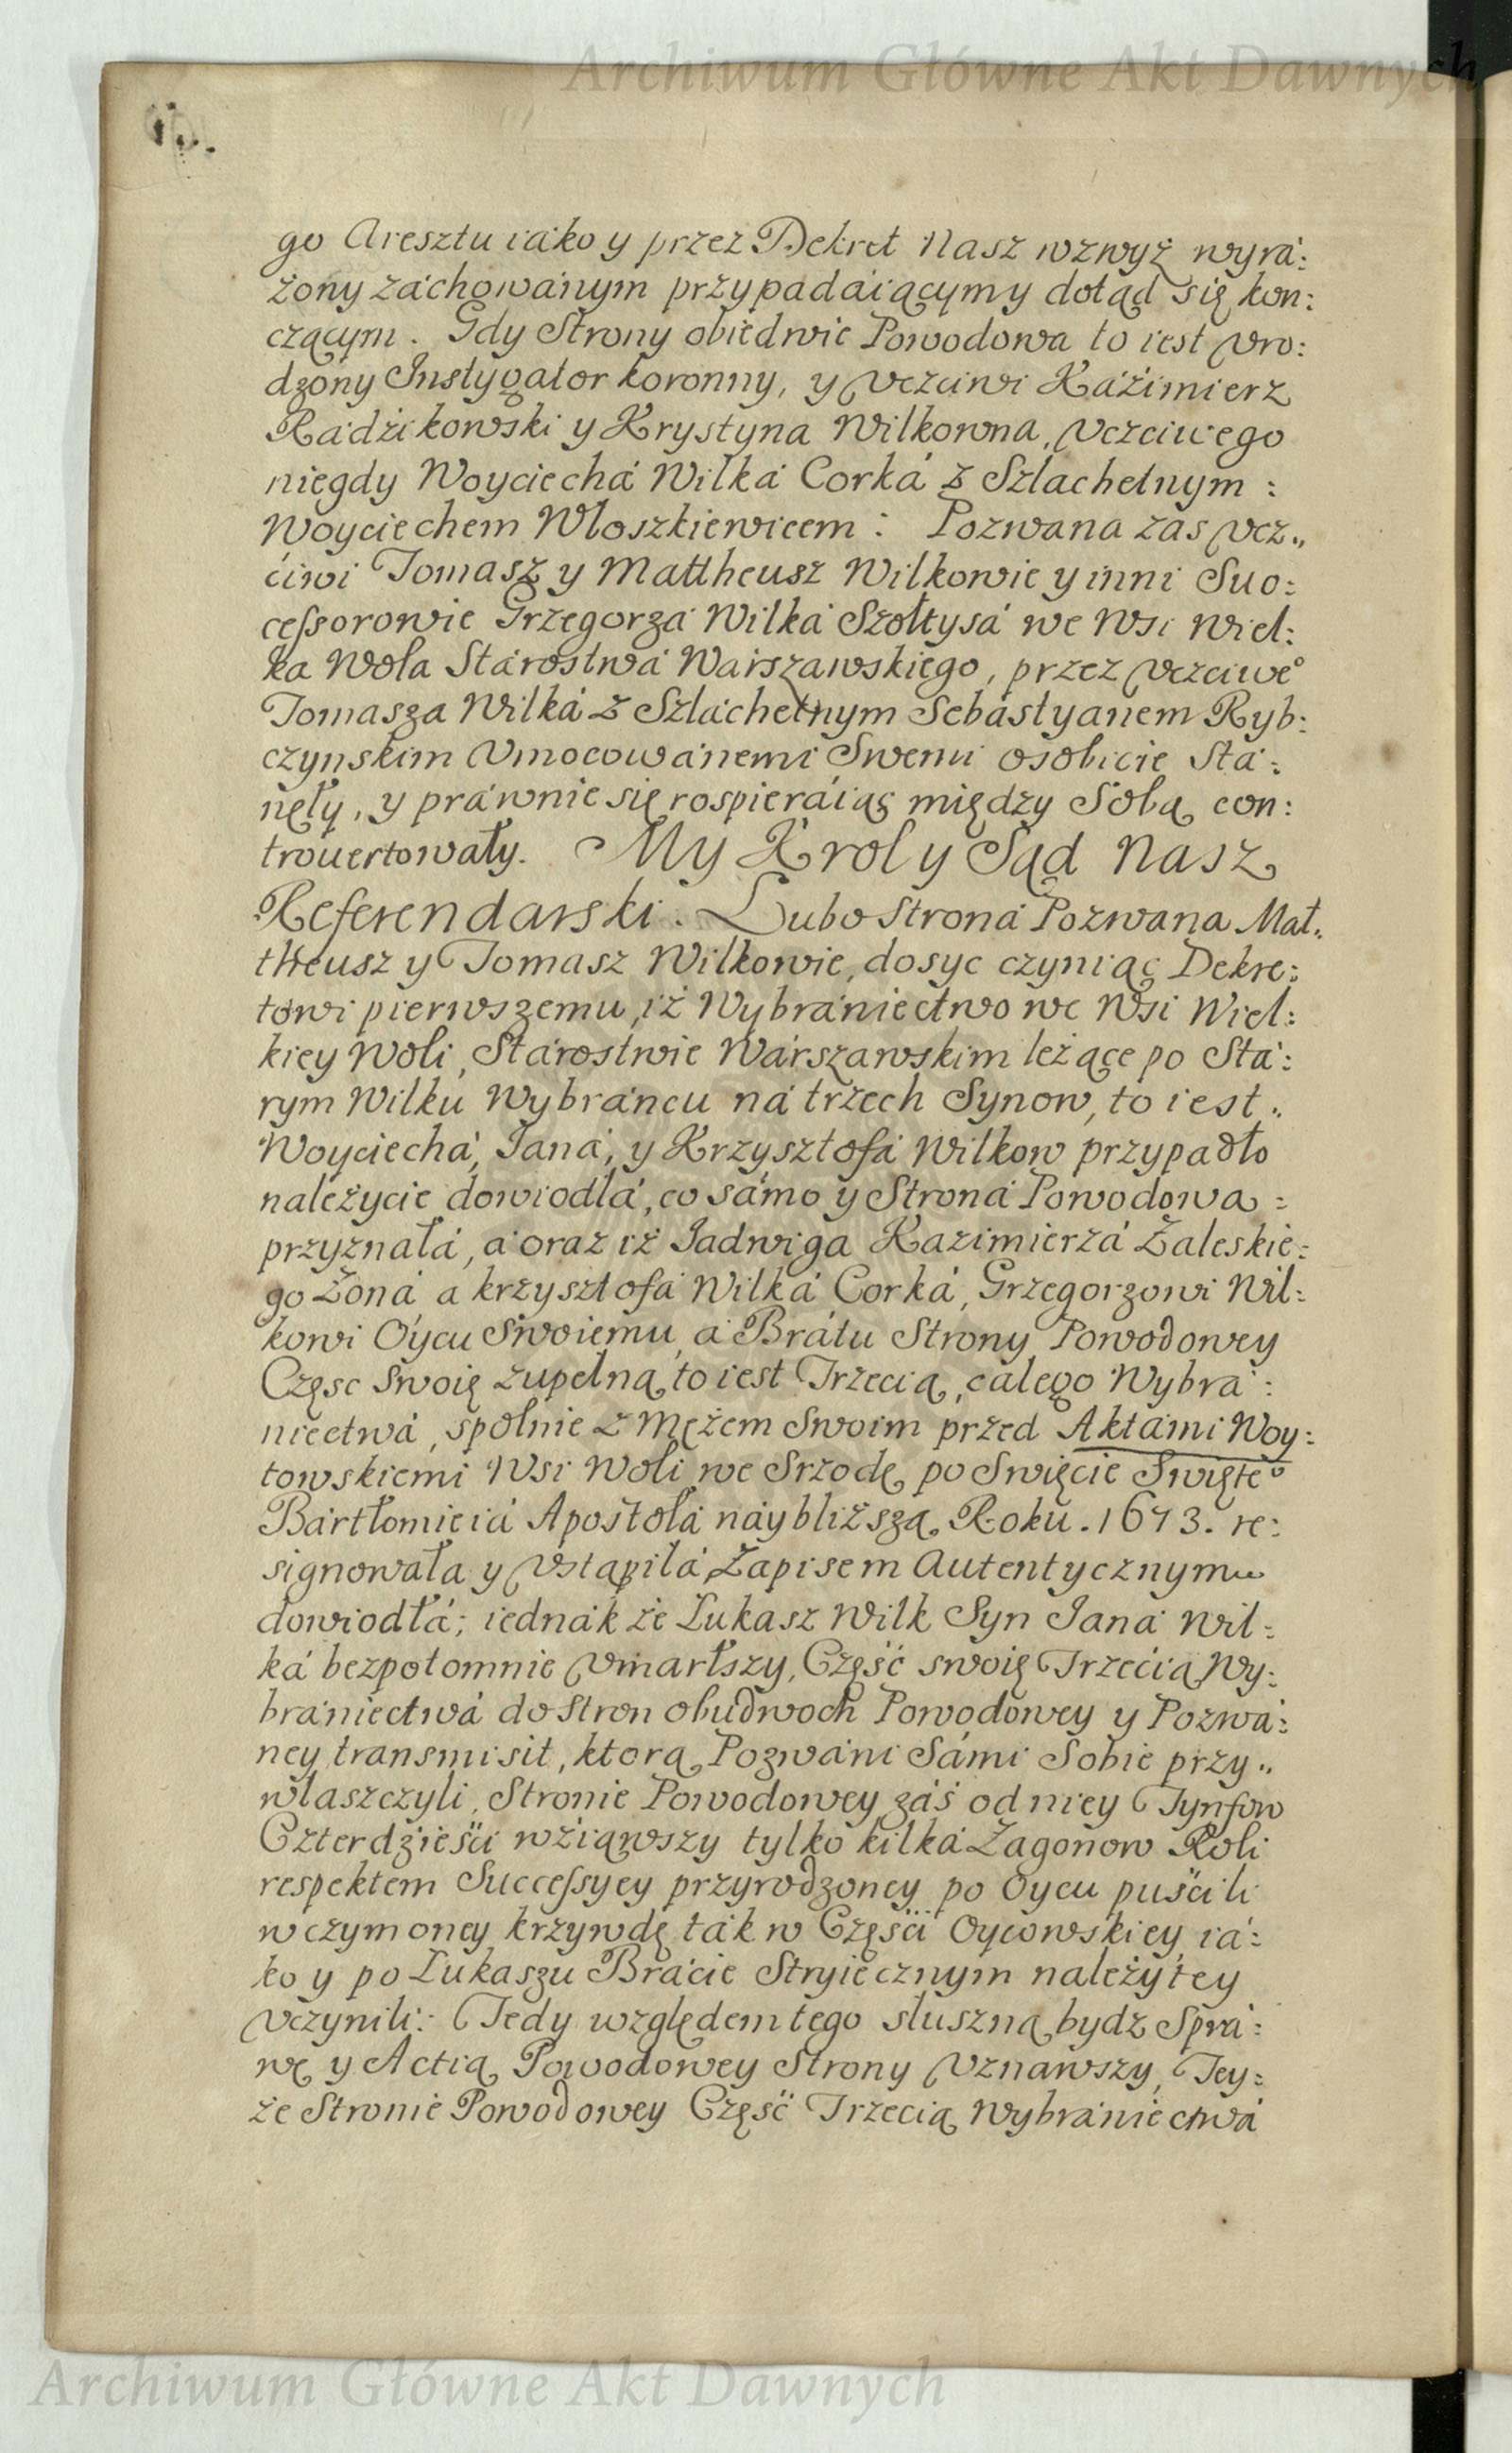 Archiwum Główne Akt Dawnych
go Aresztu iáko y przez Dekret Nasz wzwyż wyrá:
żony záchowánym przypádáiącymy dotąd się kon:
czącym. Gdy Strony obiedwie Powodowa to iest Vro:
dzony Instygator koronny, y Vczciwi Káźimierz
Rádźikowski y Krystyna Wilkowna, Vczciwego
niegdy Woyciechá Wilká Corká z Szlachetnym :
Woyciechem Wloszkiewicem : Pozwana zas Vcz„
ćiwi Tomasz y Mattheusz Wilkowie y inni Suc:
cessorowie Grzegorzá Wilká Szołtysá we Wsi Wiel:
ka Wola Stárostwá Wárszáwskiego, przez Vczciwe°
Tomasza Wilká z Szláchetnym Sebástyanem Ryb:
czynskim Vmocowánemi Swemi osobicie Stá:
nęły, y práwnie się rospieráiąc między Sobą con:
trouertowały. My Krol y Sąd Nasz
Referendarski. Lubo Stroná Pozwana Mat„
theusz y Tomasz Wilkowie, dosyc czyniąc Dekre:
towi pierwszemu, iż Wybrániectwo we Wsi Wiel:
kiey Woli, Stárostwie Wárszawskim leżące po Stá:
rym Wilku Wybráncu ná trzech Synow, to iest„
Woyciechá, Janá, y Krzysztofá Wilkow przypadło
należycie dowiodlá, co sámo y Stroná Powodowa :
przyznałá, á oraz iż Jadwiga Kazimierzá Żaleskie:
go Żoná a krzysztofá Wilká Corká, Grzegorzowi Wil:
kowi Oycu Swoiemu, á Brátu Strony Powodowey
Częsc Swoię zupelną, to iest Trzecią, calego Wybrá:
niectwá, spolnie z Mężem Swoim przed Aktámi Woy:
towskiemi Wsi Woli, we Srzodę po Swięcie Swięte°
Bártłomieiá Apostołá náybliższą, Roku. 1673. re:
signowała y Vstąpiłá, Zapisem Autentycznym
dowiodłá; iednák że Lukasz Wilk Syn Janá Wil:
ká bezpotomnie Vmarłszy, Część swoię Trzećią Wy:
brániectwá do Stron obudwoch Powodowey y Pozwá:
ney transmisit, ktorą Pozwáni Sámi Sobie przy„
wlaszczyli, Stronie Powodowey záś od niey Tynfow
Czterdzieśći wźiąwszy tylko kilká Zagonow Roli
respektem Successyey przyrodzoney po Oycu puśćili
w czym oney krzywdę ták w Częśći Oycowskiey, iá:
ko y po Lukaszu Brácie Stryiecznym należytey
Vczynili: Tedy względem tego sluszną bydz Sprá:
wę y Actią Powodowey Strony Vznawszy, Tey:
że Stronie Powodowey Część Trzecią Wybrániectwá
Archiwum Główne Akt Dawnych